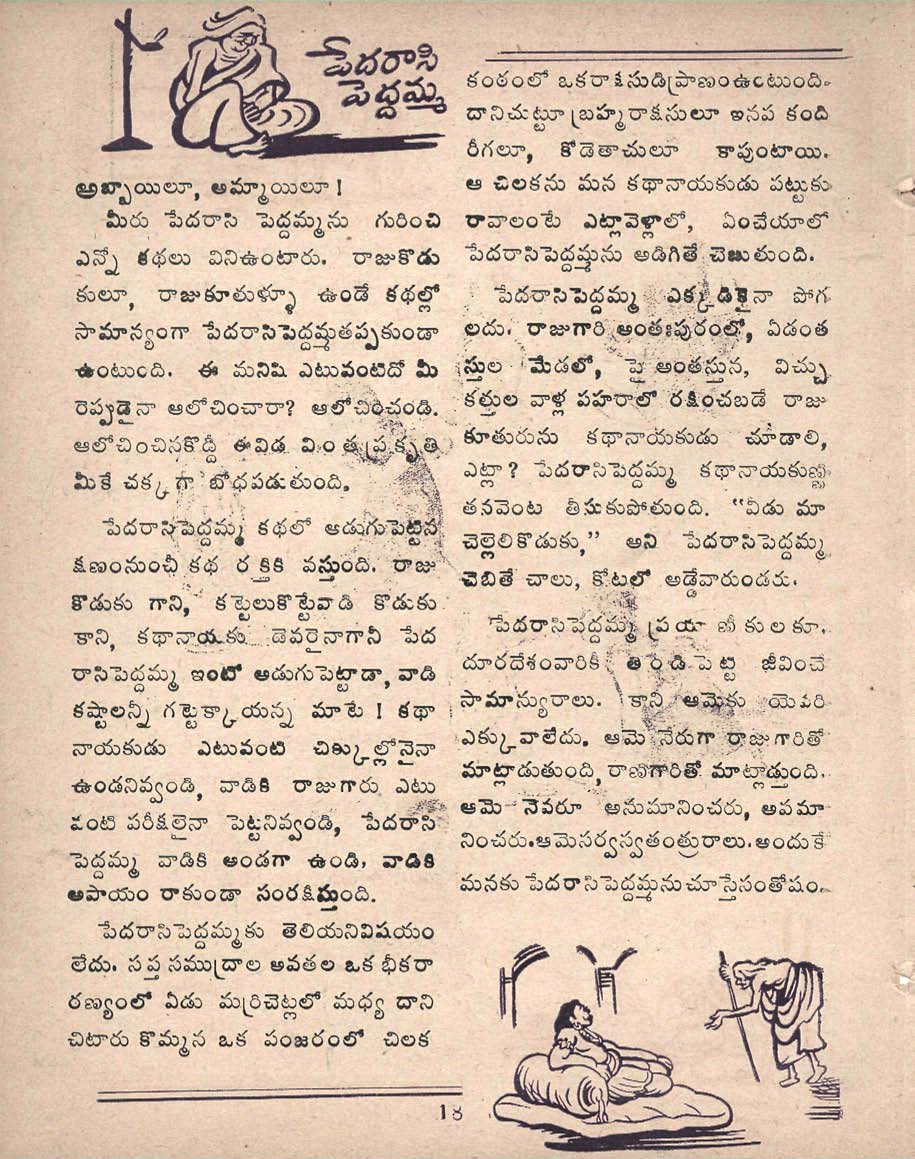 పేదరాసి
పెద్దమ్మ
అబ్బాయిలూ, అమ్మాయిలూ !
మీరు పేదరాసి పెద్దమ్మను గురించి
ఎన్నో కథలు వినిఉంటారు. రాజుకొడు
కులూ, రాజుకూతుళ్ళూ ఉండే కథల్లో
సామాన్యంగా పేదరాసిపెద్దమ్మతప్పకుండా
ఉంటుంది. ఈ మనిషి ఎటువంటిదో మీ
రెప్పుడైనా ఆలోచించారా? ఆలోచించండి.
ఆలోచించినకొద్దీ ఈవిడ వింత ప్రకృతి
మీకే చక్కగా బోధపడుతుంది.
పేదరాసిపెద్దమ్మ కథలో ఆడుగుపెట్టిన
క్షణంనుంచీ కథ రక్తికి వస్తుంది. రాజు
కొడుకు గాని, కట్టెలుకొట్టేవాడి కొడుకు
కాని, కథానాయకు డెవరైనాగానీ పేద
రాసిపెద్దమ్మ ఇంటో అడుగుపెట్టాడా, వాడి
కష్టాలన్నీ గట్టెక్కాయన్న మాటే ! కథా
నాయకుడు ఎటువంటి చిక్కుల్లోనైనా
ఉండనివ్వండి, వాడికి రాజుగారు ఎటు
వంటి పరీక్షలైనా పెట్టనివ్వండి, పేదరాసి
పెద్దమ్మ వాడికి అండగా ఉండి, వాడికి
అపాయం రాకుండా సంరక్షిస్తుంది.
పేదరాసిపెద్దమ్మకు తెలియనివిషయం
లేదు. సప్త సముద్రాల అవతల ఒక భీకరా
రణ్యంలో ఏడు మర్రిచెట్లలో మధ్య దాని
చిటారు కొమ్మన ఒక పంజరంలో చిలక
కంఠంలో ఒకరాక్షసుడిప్రాణంఉంటుంది.
దానిచుట్టూ బ్రహ్మరాక్షసులూ ఇనప కంది
రీగలూ, కోడెతాచులూ కాపుంటాయి.
ఆ చిలకను మన కథానాయకుడు పట్టుకు
రావాలంటే ఎట్లావెళ్లాలో, ఏంచేయాలో
పేదరాసిపెద్దమ్మను అడిగితే చెబుతుంది.
పేదరాసిపెద్దమ్మ ఎక్కడికైనా పోగ
లదు. రాజుగారి అంతఃపురంలో, ఏడంత
స్తుల మేడలో, పై అంతస్తున, విచ్చు
కత్తుల వాళ్ల పహరాలో రక్షించబడే రాజు
కూతురును కథానాయకుడు చూడాలి,
ఎట్లా? పేదరాసిపెద్దమ్మ కథానాయకుణ్ణి
తనవెంట తీసుకుపోతుంది. “వీడు మా
చెల్లెలికొడుకు,” అని పేదరాసిపెద్దమ్మ
చెబితే చాలు, కోటలో అడ్డేవారుండరు.
పేదరాసిపెద్దమ్మ ప్రయాణీకులకూ,
దూరదేశంవారికీ తిండిపెట్టి జీవించే
సామాన్యురాలు. కాని ఆమెకు యెవరి
ఎక్కువాలేదు. ఆమె నేరుగా రాజుగారితో
మాట్లాడుతుంది, రాణిగారితో మాట్లాడ్తుంది.
ఆమె నెవరూ అనుమానించరు, అవమా
నించరు.ఆమెసర్వస్వతంత్రురాలు.అందుకే
మనకు పేదరాసిపెద్దమ్మనుచూస్తేసంతోషం.
18